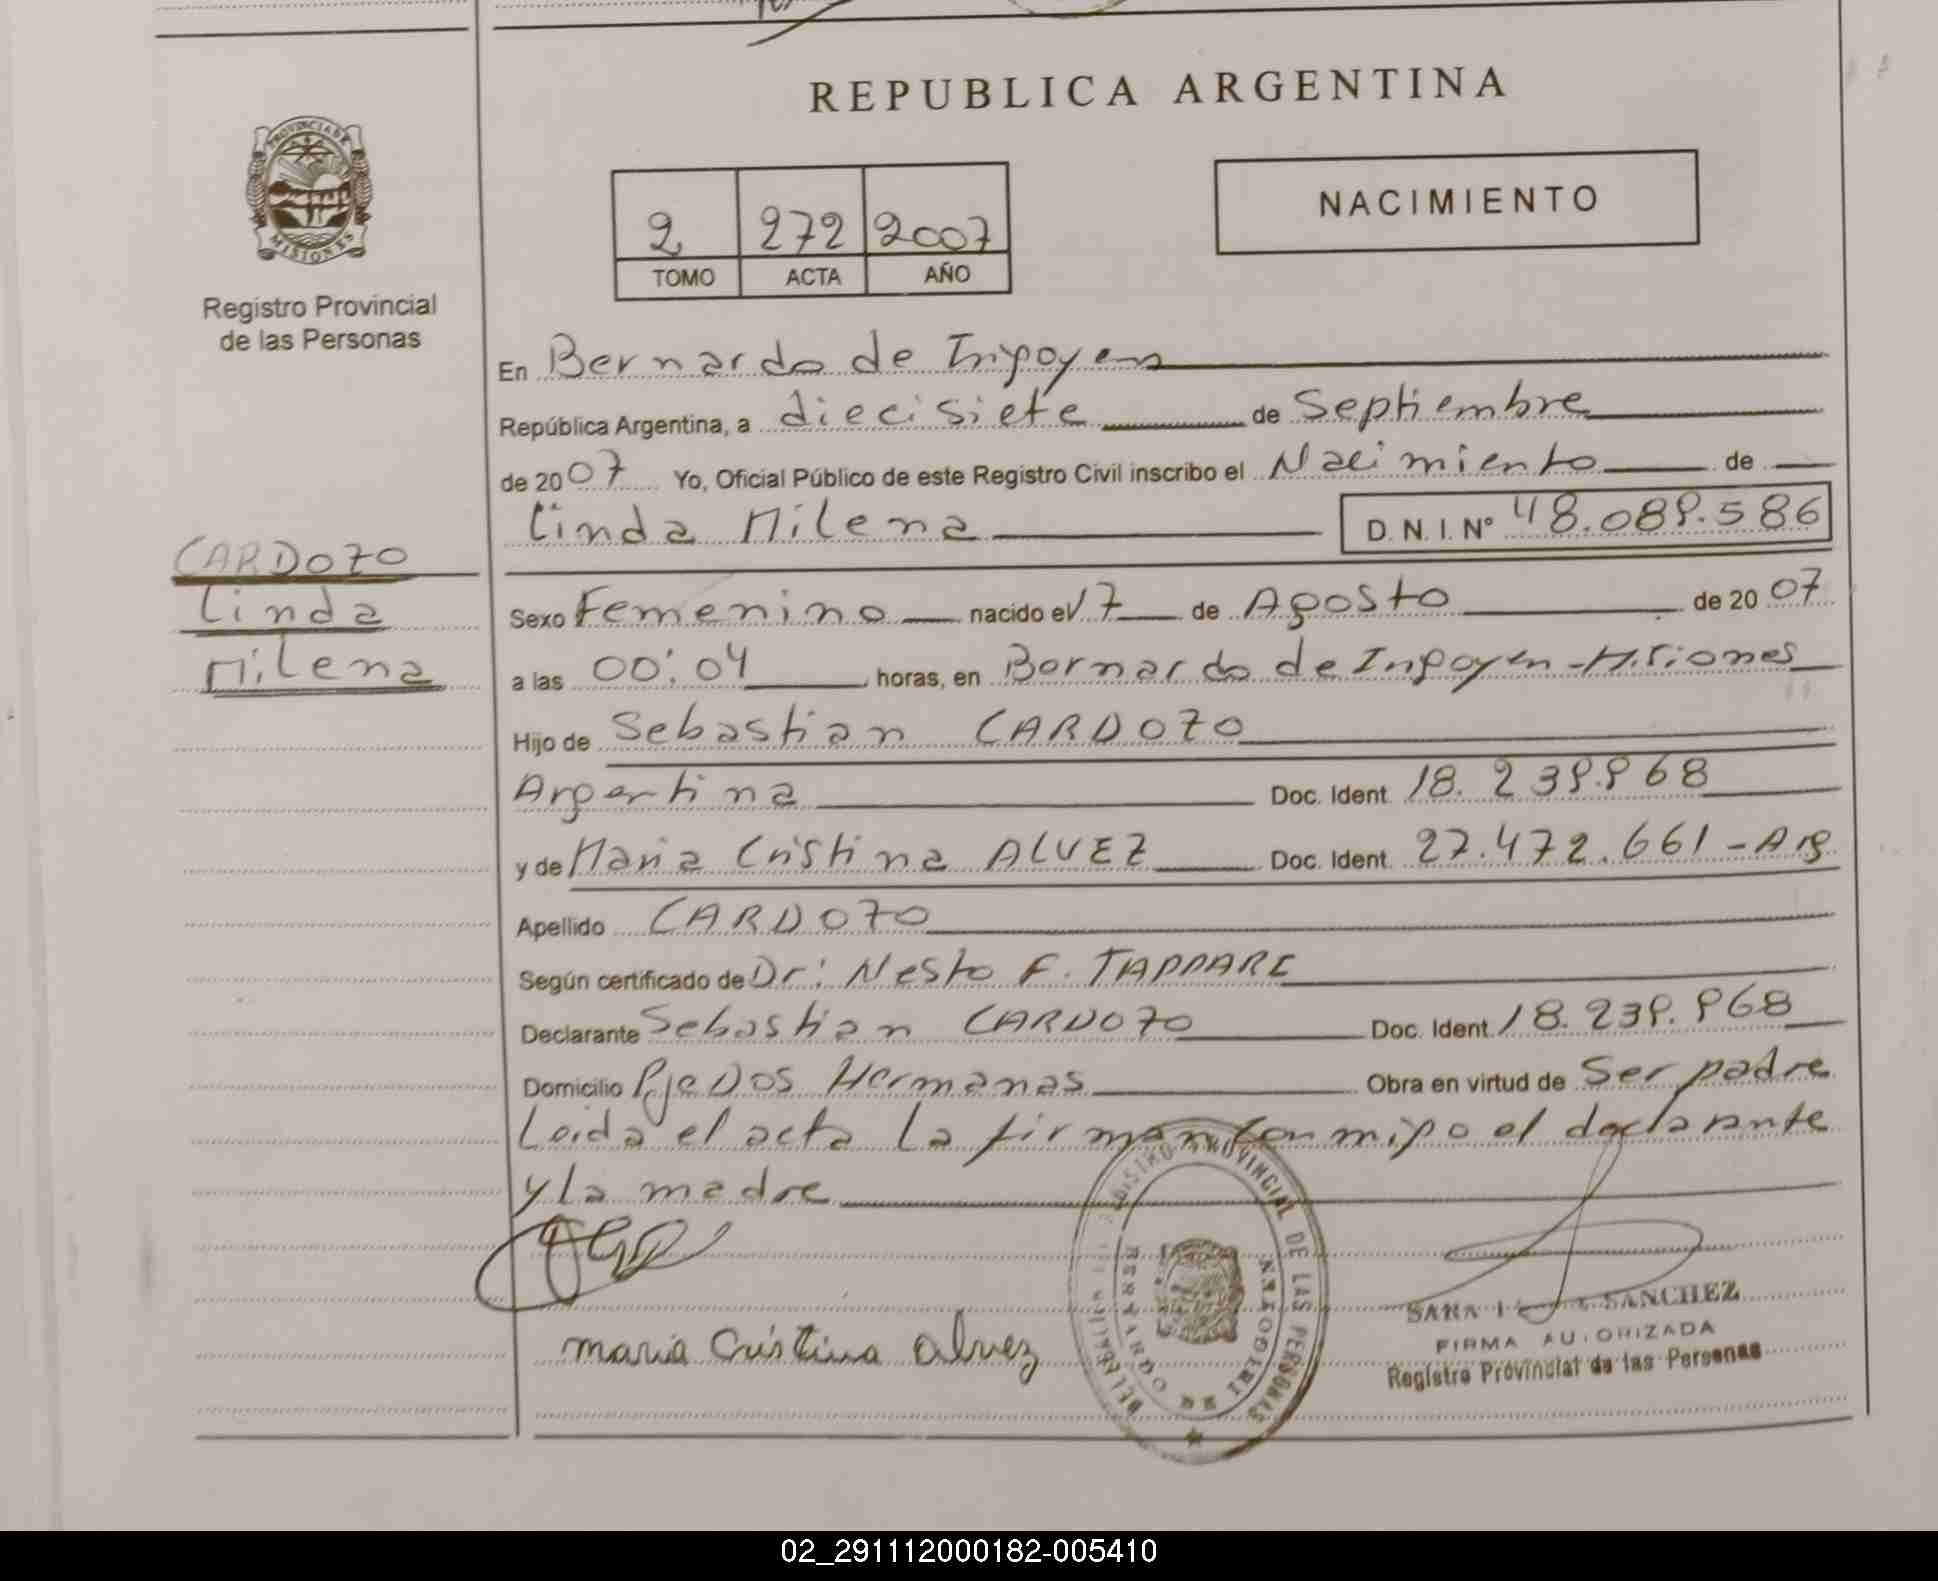 REPUBLICA ARGENTINA
PROVINCIA DE
MISIONES
Registro Provincial
de las Personas
2 272 2007
TOMO ACTA AÑO
NACIMIENTO
En Bernardo de Irigoyen
República Argentina, a diecisiete de Septiembre
de 2007 Yo, Oficial Público de este Registro Civil inscribo el Nacimiento de
Linda Milena D. N. I. Nº 48.089.586
CARDOZO
Linda
Milena
Sexo Femenino nacido el 17 de Agosto de 2007
a las 00:04 horas, en Bernardo de Irigoyen - Misiones
Hijo de Sebastian CARDOZO
Argentina Doc. Ident. 18.239.968
y de Maria Cristina ALVEZ Doc. Ident. 27.472.661 - Arg
Apellido CARDOZO
Según certificado de Dr: Nesto F.
Declarante Sebastian CARDOZO Doc. Ident. 18.239.968
Domicilio Pje Dos Hermanas Obra en virtud de Ser padre
Leida el acta la firman conmigo el declarante
y la madre
maria Cristina alvez
REGISTRO PROVINCIAL DE LAS PERSONAS
BERNARDO DE IRIGOYEN
SARA SANCHEZ
FIRMA AUTORIZADA
Registro Provincial de las Personas
02_291112000182-005410